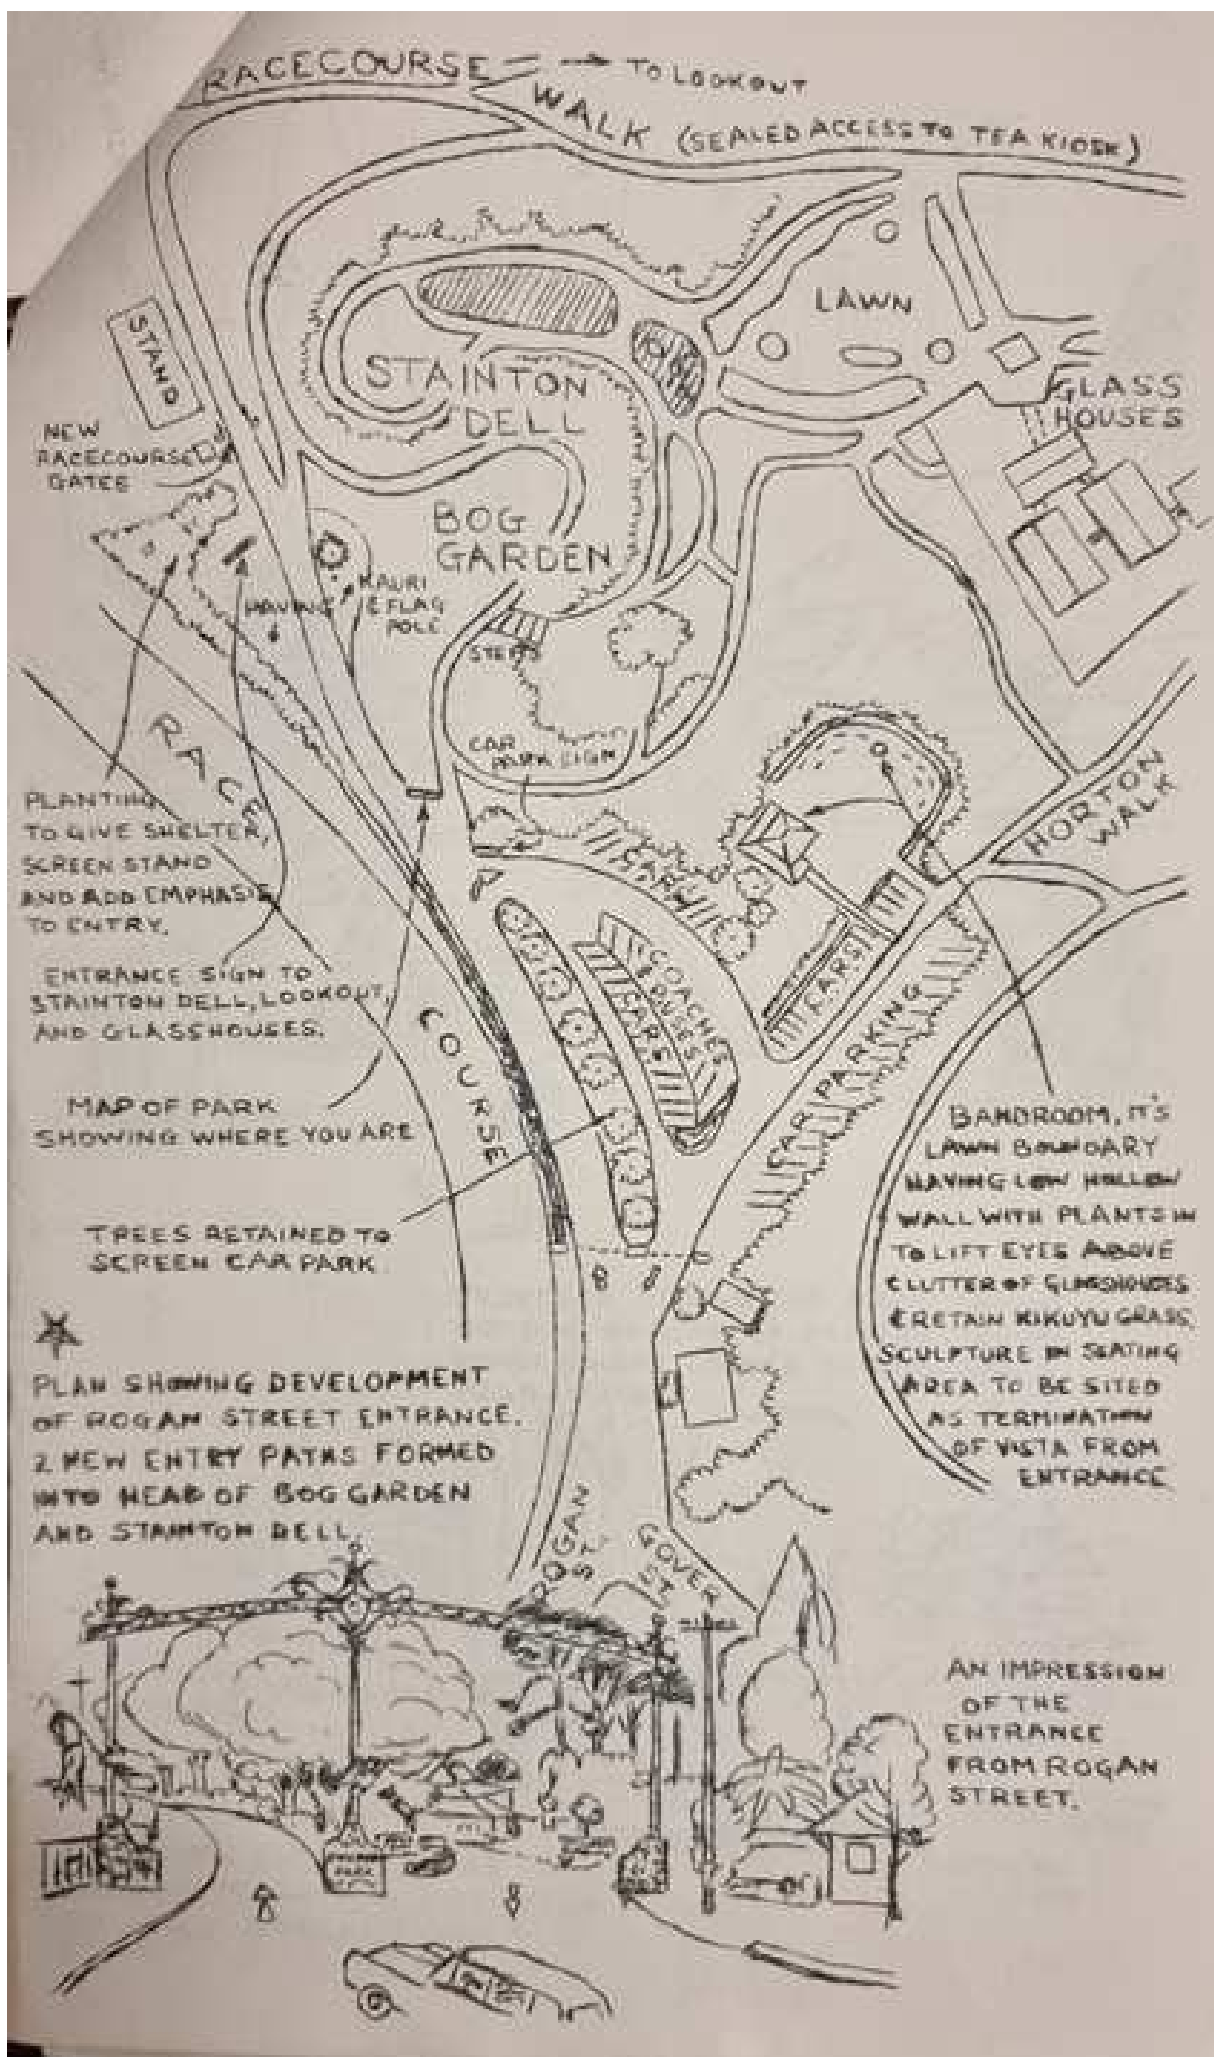 RACECOURSE
TO LOOKOUT
WALK (SEALED ACCESS TO TEA KIOSK)
LAWN
STAND
STAINTON
DELL
GLASS
HOUSES
NEW
RACECOURSE
GATES
BOG
GARDEN
KAURI
& FLAG
POLE
STEPS
CAR
PARK SIGN
RACE
COURSE
HORTON
WALK
PLANTING
TO GIVE SHELTER,
SCREEN STAND
AND ADD EMPHASIS
TO ENTRY.
CARS
COACHES
& BUSES
CARS
CARS
CAR PARKING
ENTRANCE SIGN TO
STAINTON DELL, LOOKOUT,
AND GLASSHOUSES.
MAP OF PARK
SHOWING WHERE YOU ARE
TREES RETAINED TO
SCREEN CAR PARK
BANDROOM, IT'S
LAWN BOUNDARY
HAVING LOW HOLLOW
WALL WITH PLANTS IN
TO LIFT EYES ABOVE
CLUTTER OF GLASSHOUSES
& RETAIN KIKUYU GRASS.
SCULPTURE IN SEATING
AREA TO BE SITED
AS TERMINATION
OF VISTA FROM
ENTRANCE
PLAN SHOWING DEVELOPMENT
OF ROGAN STREET ENTRANCE.
2 NEW ENTRY PATHS FORMED
INTO HEAD OF BOG GARDEN
AND STAINTON DELL.
ROGAN
ST.
GOVER
ST
AN IMPRESSION
OF THE
ENTRANCE
FROM ROGAN
STREET.
PARK